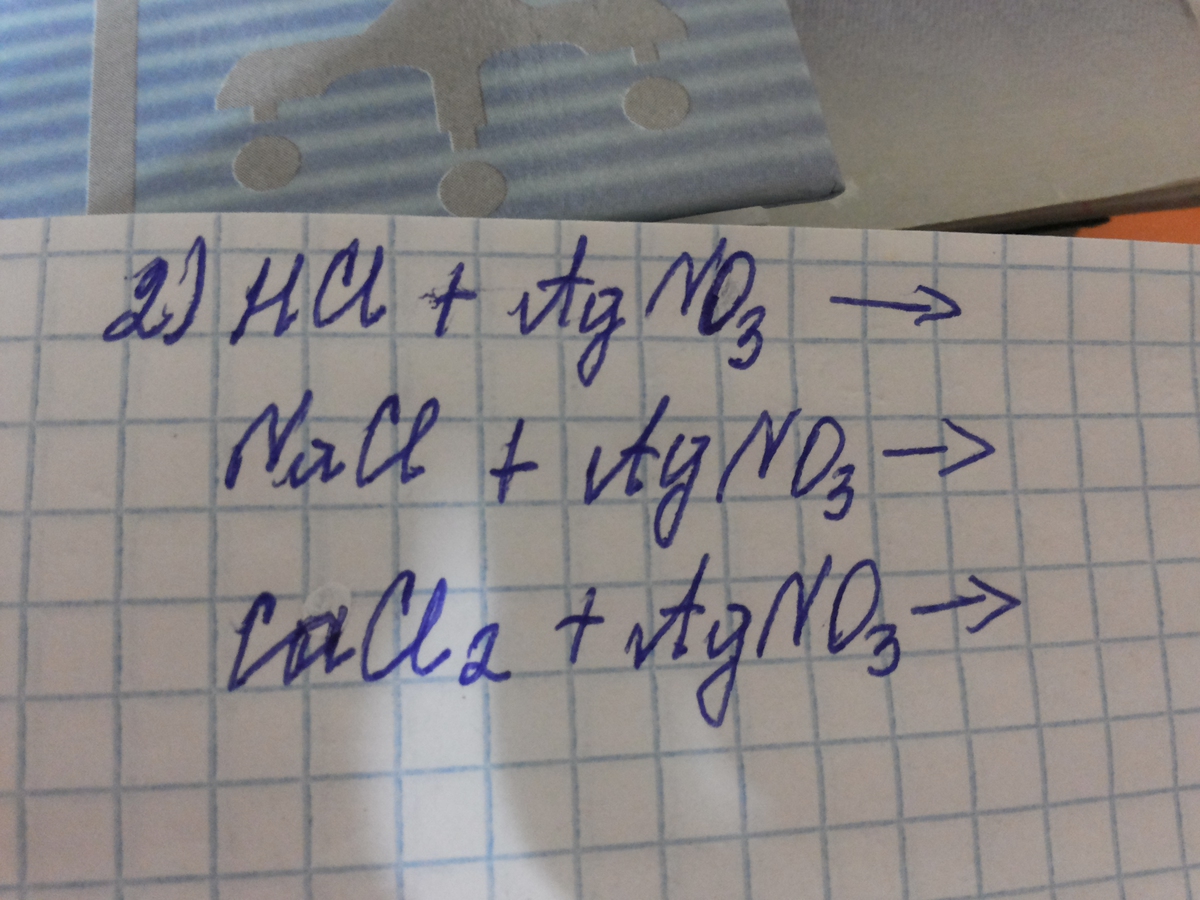 2) HCl + AgNO₃ →
NaCl + AgNO₃ →
CaCl₂ + AgNO₃ →